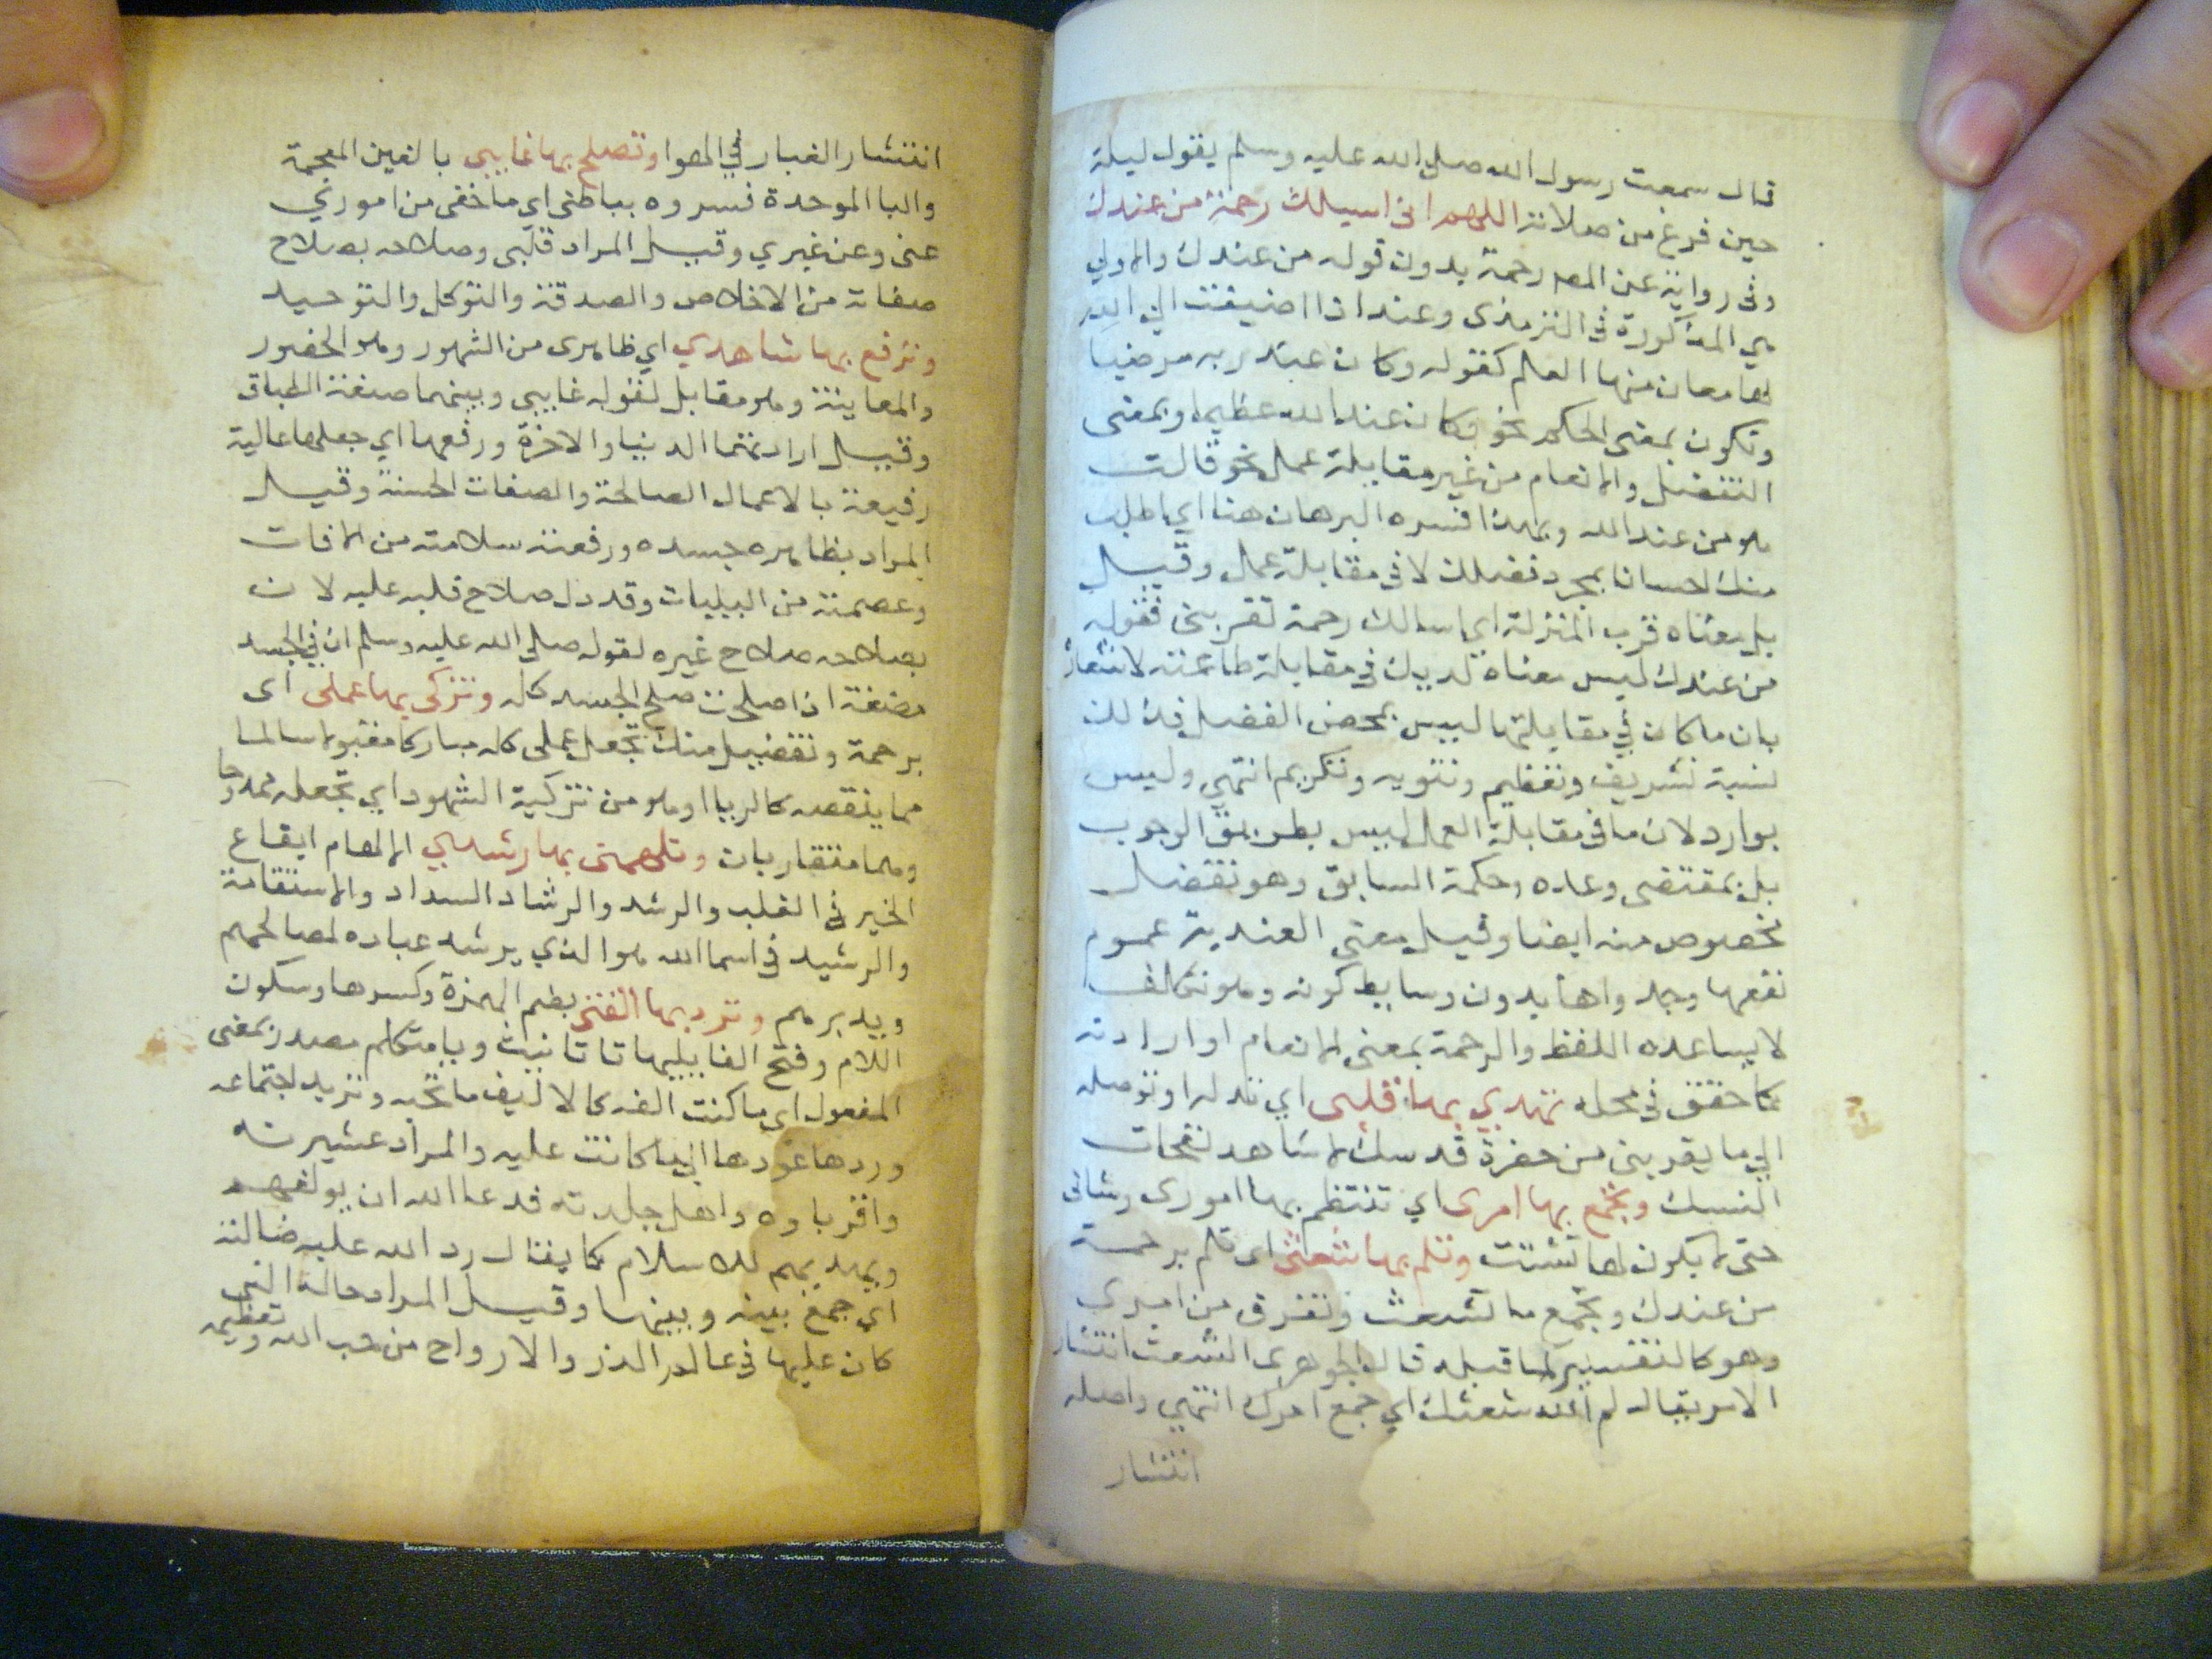 قال سمعت رسول الله صلى الله عليه وسلم يقول ليلة
حين فرغ من صلاته اللهم انى اسيلك رحمة من عندك
وفى رواية عن المص رحمة بدون قوله من عندك والاولي
هي المذكورة فى الترمذى وعند اذا اضيفت الي الله
لها معان منها العلم كقوله وكان عند ربه مرضيا
وتكون بمعنى الحكم نحو وكان عند الله عظيما وبمعنى
التفضل والانعام من غير مقابلة عمل نحو قالت
هو من عند الله وبهذا فسره البرهان هنا اي اطلب
منك احسانا بمجرد فضلك لا فى مقابلة عمل وقيل
بل معناه قرب المنزلة اي اسالك رحمة تقربنى فقوله
من عندك ليس معناه لديك فى مقابلة طاعته
بان ما كان في مقابلتها ليس بمحض الفضل فذلك
نسبة تشريف وتعظيم وتنويه وتكريم انتهي وليس
بوارد لان ما فى مقابلة العمل ليس بطريق الوجوب
بل بمقتضى وعده وحكمة السابق وهو تفضل
مخصوص منه ايضا وقيل معنى العندية عموم
نفعها وجدواها بدون وسايط كونه وهو تكلف
لا يساعده اللفظ والرحمة بمعنى الانعام او ارادته
كما حقق فى محله تهدي بها قلبى اي تدله او توصله
الي ما يقربنى من حضرة قدسك لاشاهد نفحات
النسك وتجمع بها امرى اي تنتظم بها امورى وشانى
حتى لا يكون لها تشتت وتلم بها شعثى اى تلم برحمة
من عندك وتجمع ما تشعث وتفرق من امري
وهو كالتفسير لما قبله قال الجوهرى الشعث انتشار
الامر يقال لم الله شعثك اي جمع امرك انتهي واصله
انتشار
انتشار الغبار في الهوا وتصلح بها غايبى بالغين المعجمة
والبا الموحدة فسروه بباطنى اي ما خفى من اموري
عنى وعن غيري وقيل المراد قلبى وصلاحه بصلاح
صفاته من الاخلاص والصدق والتوكل والتوحيد
وترفع بها شاهدي اي ظاهرى من الشهور وهو الحضور
والمعاينة وهو مقابل لقوله غايبى وبينهما صنعة الطباق
وقيل اراد بهما الدنيا والاخرة ورفعها اي جعلها عالية
رفيعة بالاعمال الصالحة والصفات الحسنة وقيل
المراد بظاهره جسده ورفعته سلامته من الافات
وعصمته من البليات وقد دل صلاح قلبه عليه لان
بصلاحه صلاح غيره لقوله صلى الله عليه وسلم ان في الجسد
مضغة اذا صلحت صلح الجسد كله وتزكى بها عملى اى
برحمة وتفضيل منك تجعل عملى كله مباركا مقبولا سالما
مما ينقصه كالريا او هو من تزكية الشهود اي تجعله ممدوحا
وهما متقاربان وتلهمنى بها رشدي الالهام ايقاع
الخير فى القلب والرشد والرشاد السداد والاستقامة
والرشيد فى اسما الله هو الذي يرشد عباده لمصالحهم
ويدبرهم وترد بها الفتى بضم الهمزة وكسرها وسكون
اللام وفتح الفا يليها تا تانيث ويا متكلم مصدر بمعنى
المفعول اى ما كنت الفه كالاليف ما تحبه وتريد اجتماعه
وردها عودها الي ما كانت عليه والمراد عشيرته
واقرباوه واهل جلدته فدعا الله ان يولفهم
ويهديهم للاسلام كما يقال رد الله عليه ضالته
اي جمع بينه وبينها وقيل المراد حاله التى
كان عليها فى عالم الذر والارواح من حب الله وتعظيمه